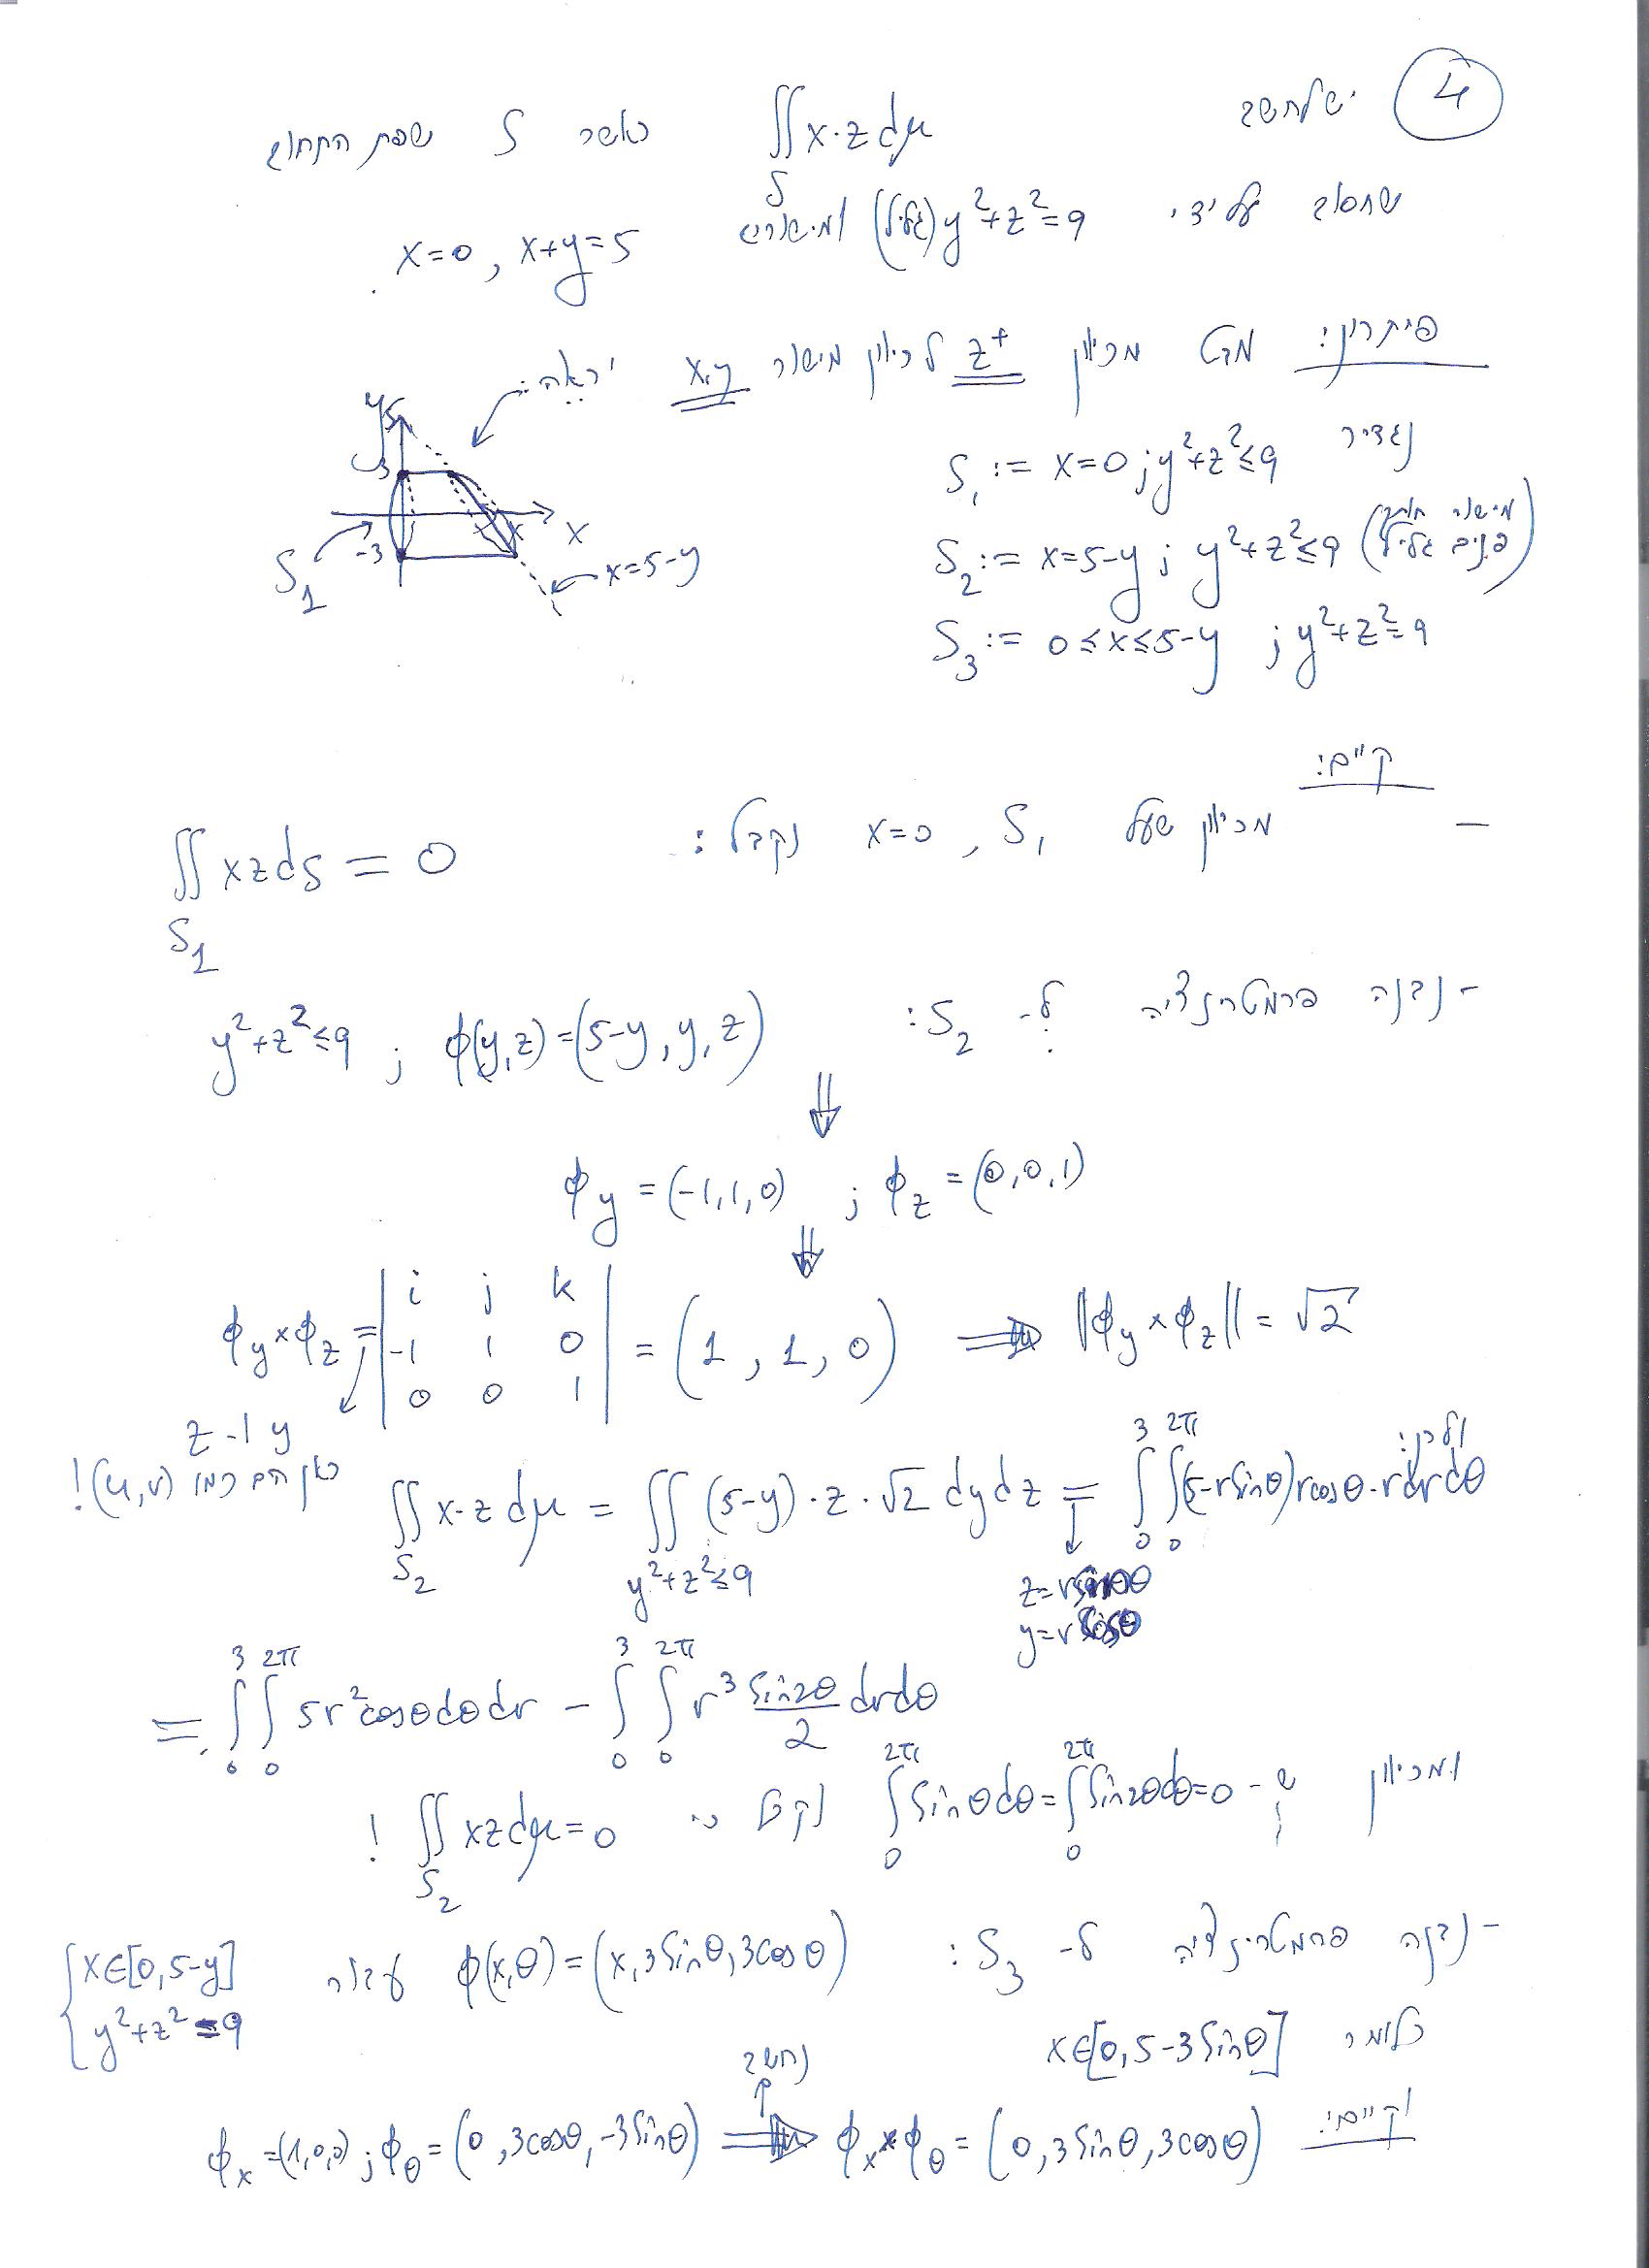 ④ יש לחשב ∬_S x·z dμ כאשר S שפת התחום
שחסום על ידי y²+z²=9 (גליל) ומישורים x=0, x+y=5.
פיתרון: מבט מכיוון z⁺ לכיוון מישור x,y יראה:
y 5 3 -3 x S₁ x=5-y
נגדיר S₁ := x=0 ; y²+z²≤9
S₂ := x=5-y ; y²+z²≤9 (מישור חותך פנים גליל)
S₃ := 0≤x≤5-y ; y²+z²=9
קיים:
– מכיוון שעל S₁, x=0 נקבל: ∬_{S₁} xz ds = 0
- נבנה פרמטריזציה ל- S₂: φ(y,z)=(5-y,y,z) ; y²+z²≤9
⇓
φ_y=(-1,1,0) ; φ_z=(0,0,1)
⇓
φ_y×φ_z = |i j k; -1 1 0; 0 0 1| = (1,1,0) ⇒ ||φ_y×φ_z||=√2
y ו- z כאן הם כמו (u,v)!
ולכן: ∬_{S₂} x·z dμ = ∬_{y²+z²≤9} (5-y)·z·√2 dydz = ∫₀³∫₀^{2π} (5-r sinθ) r cosθ·r dr dθ
z=r sinθ
y=r cosθ
= ∫₀³∫₀^{2π} 5r² cosθ dθ dr - ∫₀³∫₀^{2π} r³ (sin2θ)/2 dr dθ
ומכיוון ש- ∫₀^{2π} sinθ dθ = ∫₀^{2π} sin2θ dθ = 0 נקבל כי ∬_{S₂} xz dμ = 0 !
- נבנה פרמטריזציה ל- S₃: φ(x,θ)=(x,3sinθ,3cosθ) עבור { x∈[0,5-y] y²+z²=9
כלומר x∈[0,5-3sinθ]
וקיים: φ_x=(1,0,0) ; φ_θ=(0,3cosθ,-3sinθ) ⇒ נחשב φ_x×φ_θ=(0,3sinθ,3cosθ)